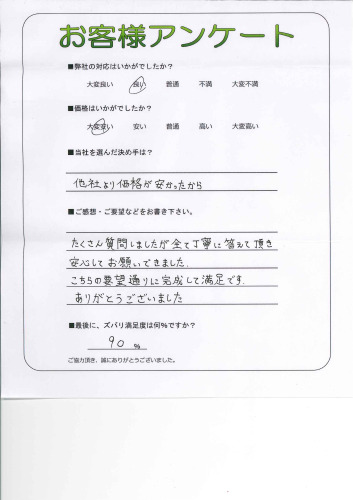 お客様アンケート
■弊社の対応はいかがでしたか?
大変良い 良い 普通 不満 大変不満
■価格はいかがでしたか?
大変安い 安い 普通 高い 大変高い
■当社を選んだ決め手は?
他社より価格が安かったから
■ご感想・ご要望などをお書き下さい。
たくさん質問しましたが全て丁寧に答えて頂き
安心してお願いできました.
こちらの要望通りに完成して満足です.
ありがとうございました
■最後に、ズバリ満足度は何%ですか?
90 %
ご協力頂き、誠にありがとうございました。